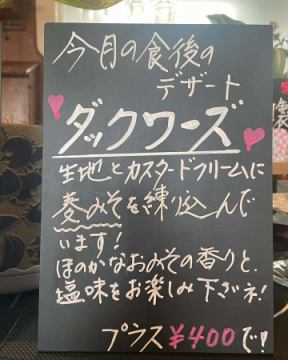 今月の食後の
デザート
ダックワーズ
生地とカスタードクリームに
麦みそを練り込んで
います!
ほのかなおみその香りと、
塩味をお楽しみ下さネ!
プラス¥400で!